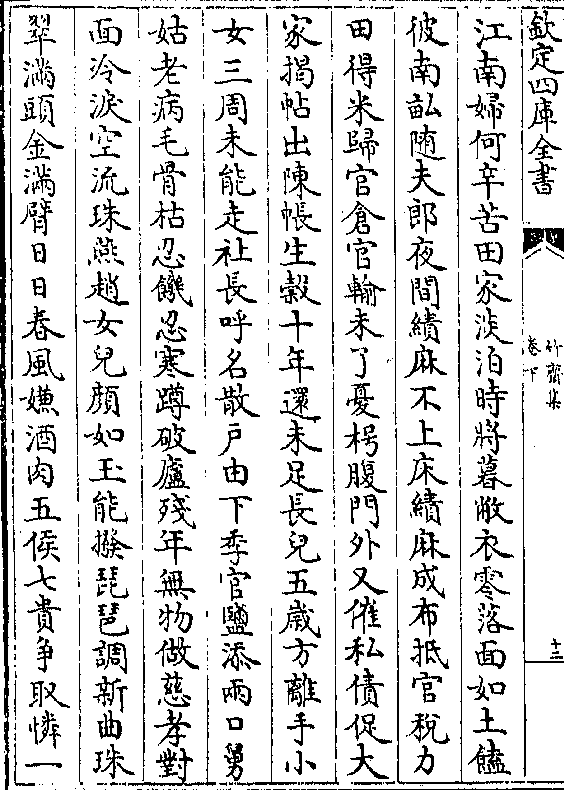 欽定四庫全書
竹齋集
卷下
十二
江南婦何辛苦田家淡泊時將暮敝衣零落面如土饁
彼南畝随夫郎夜間績麻不上床績麻成布抵官税力
田得米歸官倉官輸未了憂枵腹門外又催私債促大
家揭帖出陳帳生榖十年還未足長兒五歲方離手小
女三周未能走社長呼名散戶由下季官鹽添兩口舅
姑老病毛骨枯忍饑忍寒蹲破廬殘年無物做慈孝對
面冷淚空流珠燕趙女兒顔如玉能撥琵琶調新曲珠
翠滿頭金滿臂日日春風嫌酒肉五侯七貴争取憐一